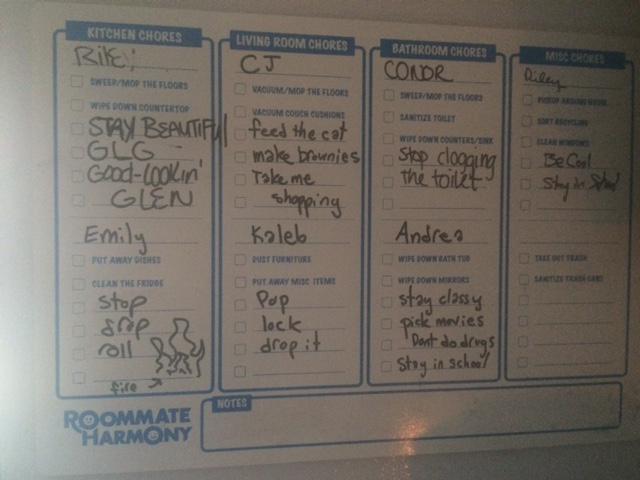 KITCHEN CHORES
Riley
SWEEP/MOP THE FLOORS
WIPE DOWN COUNTERTOP
STAY BEAUTIFUL
GLG
GOOD-LOOKIN'
GLEN
Emily
PUT AWAY DISHES
CLEAN THE FRIDGE
stop
drop
roll
fire
LIVING ROOM CHORES
CJ
VACUUM/MOP THE FLOORS
VACUUM COUCH CUSHIONS
feed the cat
make brownies
Take me
shopping
Kaleb
DUST FURNITURE
PUT AWAY MISC ITEMS
Pop
lock
drop it
BATHROOM CHORES
CONOR
SWEEP/MOP THE FLOORS
SANITIZE TOILET
WIPE DOWN COUNTERS/SINK
Stop clogging
the toilet
Andrea
WIPE DOWN BATH TUB
WIPE DOWN MIRRORS
stay classy
pick movies
Dont do drugs
Stay in school
MISC CHORES
Riley
PICKUP AROUND HOUSE
SORT RECYCLING
CLEAN WINDOWS
Be Cool
Stay in School
TAKE OUT TRASH
SANITIZE TRASH CANS
ROOMMATE
HARMONY
NOTES